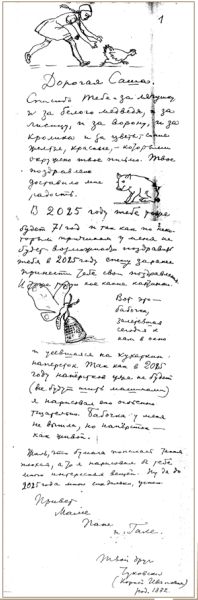 1
Дорогая Саша.
Спасибо тебе за лягушку
и за белого медведя, и за
лисицу, и за ворону, и за
кролика и за цветы, синие
желтые, красные, — которыми
окружено твое письмо. Твое
поздравление
доставило мне
радость.
В 2025 году тебе уже
будет 71 год и так как по неко-
торым причинам у меня не
будет возможности поздравить
тебя в 2025 году, спешу заранее
принести тебе свои поздравления.
И даже кое какие картинки.
Вот это —
бабочка,
залетевшая
сегодня к
нам в окно
и усевшаяся на кухаркин
наперсток. Так как в 2025
году наперстков уже не будет
(все будут шить машинами)
я нарисовал его особенно
тщательно. Бабочка у меня
не вышла, но наперсток —
как живой.
Жаль, что бумага попалась такая
плохая, а то я нарисовал бы тебе
много интересных вещей. Ну да до
2025 года много
Привет
Маме
Папе
и Гале.
Твой друг
Чуковский
(Корней Иванович)
род. 1882.